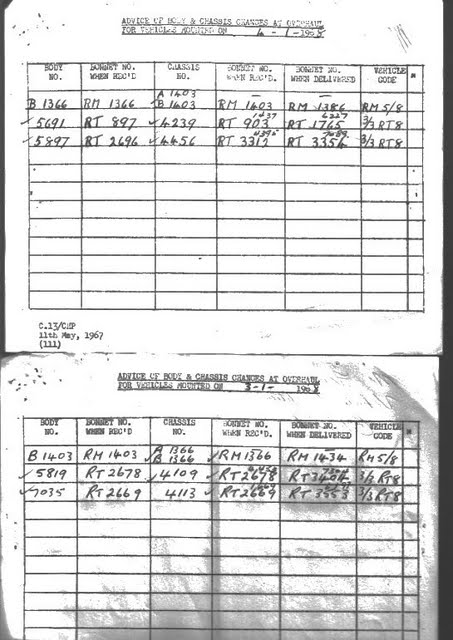 ADVICE OF BODY & CHASSIS CHANGES AT OVERHAUL
FOR VEHICLES MOUNTED ON 4 - 1 - 1968
BODY NO. BONNET NO. WHEN REC'D CHASSIS NO. BONNET NO. WHEN REC'D. BONNET NO. WHEN DELIVERED VEHICLE CODE
A 1403 — —
B 1366 RM 1366 B 1403 RM 1403 RM 1386 RM 5/8
1437 6227
✓5691 RT 897 ✓4239 RT 903 RT 1765 3/3 RT8
4395
✓5897 RT 2696 ✓4456 RT 3312 RT 3354 3/3 RT8
C.13/CMP
11th May, 1967
(111)
ADVICE OF BODY & CHASSIS CHANGES AT OVERHAUL
FOR VEHICLES MOUNTED ON 3-1- 1968
BODY NO. BONNET NO. WHEN REC'D CHASSIS NO. BONNET NO. WHEN REC'D. BONNET NO. WHEN DELIVERED VEHICLE CODE
A 1366
B 1403 RM 1403 ✓B 1366 ✓RM 1366 RM 1434 RM 5/8
✓5819 RT 2678 ✓4109 ✓RT 2678 RT 3404 3/3 RT8
✓7035 RT 2669 4113 ✓RT 2669 RT 3/3 RT8